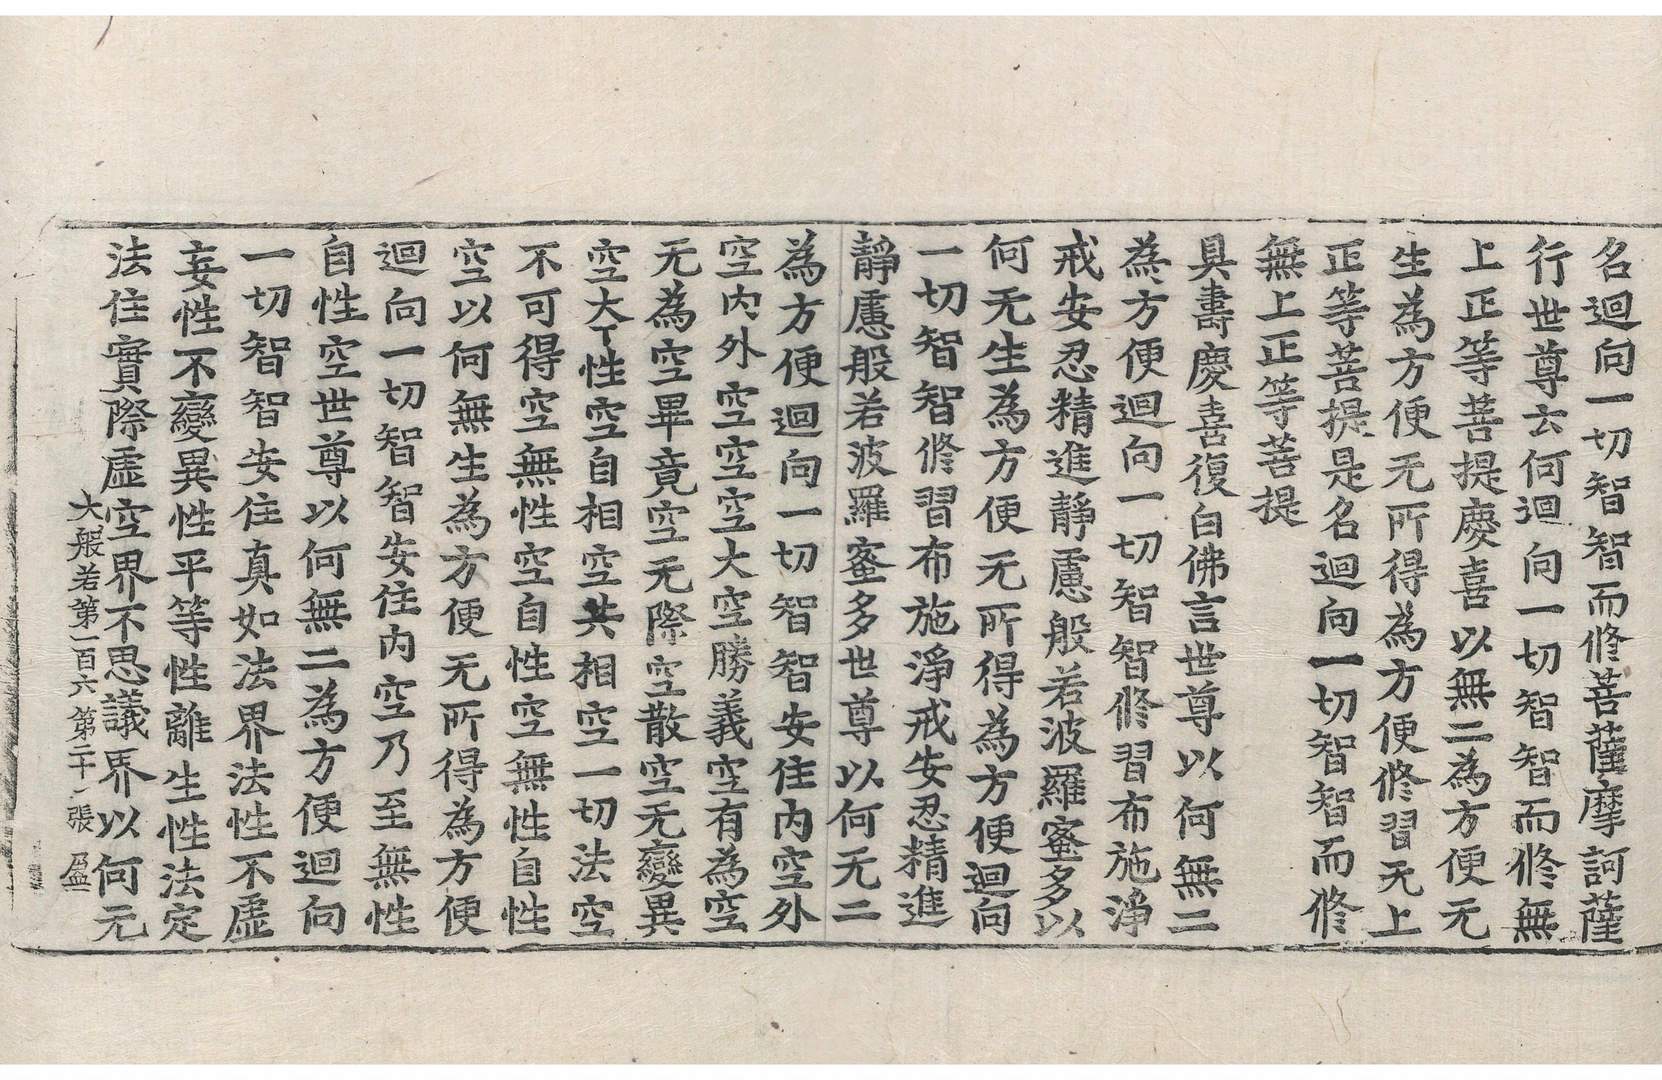 名迴向一切智智而修菩薩摩訶薩
行世尊云何迴向一切智智而修無
上正等菩提慶喜以無二為方便无
生為方便无所得為方便修習无上
正等菩提是名迴向一切智智而修
無上正等菩提
具壽慶喜復白佛言世尊以何無二
為方便迴向一切智智修習布施淨
戒安忍精進靜慮般若波羅蜜多以
何无生為方便无所得為方便迴向
一切智智修習布施淨戒安忍精進
靜慮般若波羅蜜多世尊以何无二
為方便迴向一切智智安住內空外
空內外空空空大空勝義空有為空
无為空畢竟空无際空散空无變異
空大丁性空自相空共相空一切法空
不可得空無性空自性空無性自性
空以何無生為方便无所得為方便
迴向一切智智安住內空乃至無性
自性空世尊以何無二為方便迴向
一切智智安住真如法界法性不虛
妄性不變異性平等性離生性法定
法住實際虛空界不思議界以何无
大般若第一百六 第二十一張 盈